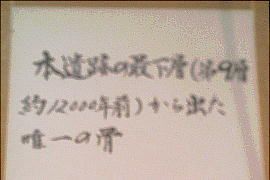 本道跡の最下層(第9層
約12000年前)から出た
唯一の骨